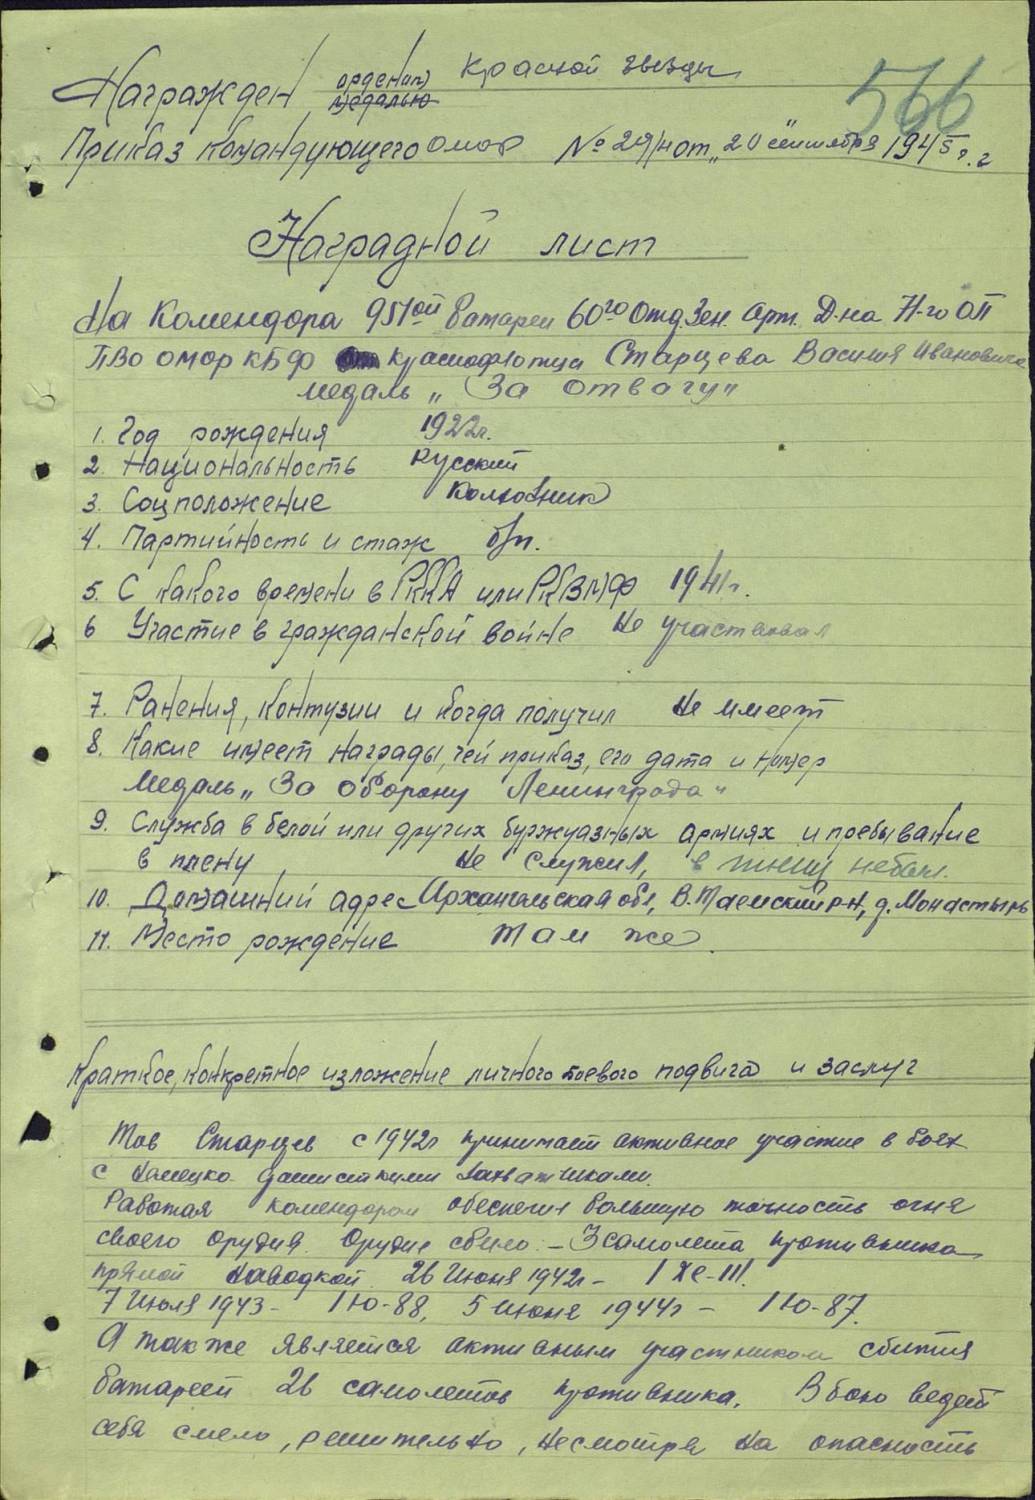 566
Награжден орденом Красной звезды
медалью
Приказ Командующего ОМОР № 29/н от "20" сентября 1945 г.
Наградной лист
На Комендора 951ой батареи 60го Отд. Зен. Арт. Д-на Н-го ОП
ПВО ОМОР КБФ краснофлотца Старцева Василия Ивановича
медаль „За отвагу"
1. Год рождения 1922г.
2. Национальность русский
3. Соцположение колхозник
4. Партийность и стаж б/п.
5. С какого времени в РККА или РКВМФ 1941г.
6 Участие в гражданской войне Не участвовал
7. Ранения, контузии и когда получил Не имеет
8. Какие имеет награды, чей приказ, его дата и номер
Медаль „За оборону Ленинграда"
9. Служба в белой или других буржуазных армиях и пребывание
в плену не служил, в плену не был.
10. Домашний адрес Архангельская обл, В.Тоемский р-н, д. Монастырь
11. Место рождение там же.
Краткое, конкретное изложение личного боевого подвига и заслуг
Тов Старцев с 1942г принимает активное участие в боях
с немецко фашисткими захватчиками.
Работая комендором обеспечил большую точность огня
своего орудия. Орудие сбило – 3 самолета противника
прямой наводкой. 26 Июня 1942г – 1 ХЕ-111.
7 Июля 1943 – 1 Ю-88, 5 июня 1944г – 1 Ю-87.
А также является активным участником сбития
батареей 26 самолетов противника. В бою ведет
себя смело, решительно, несмотря на опасность